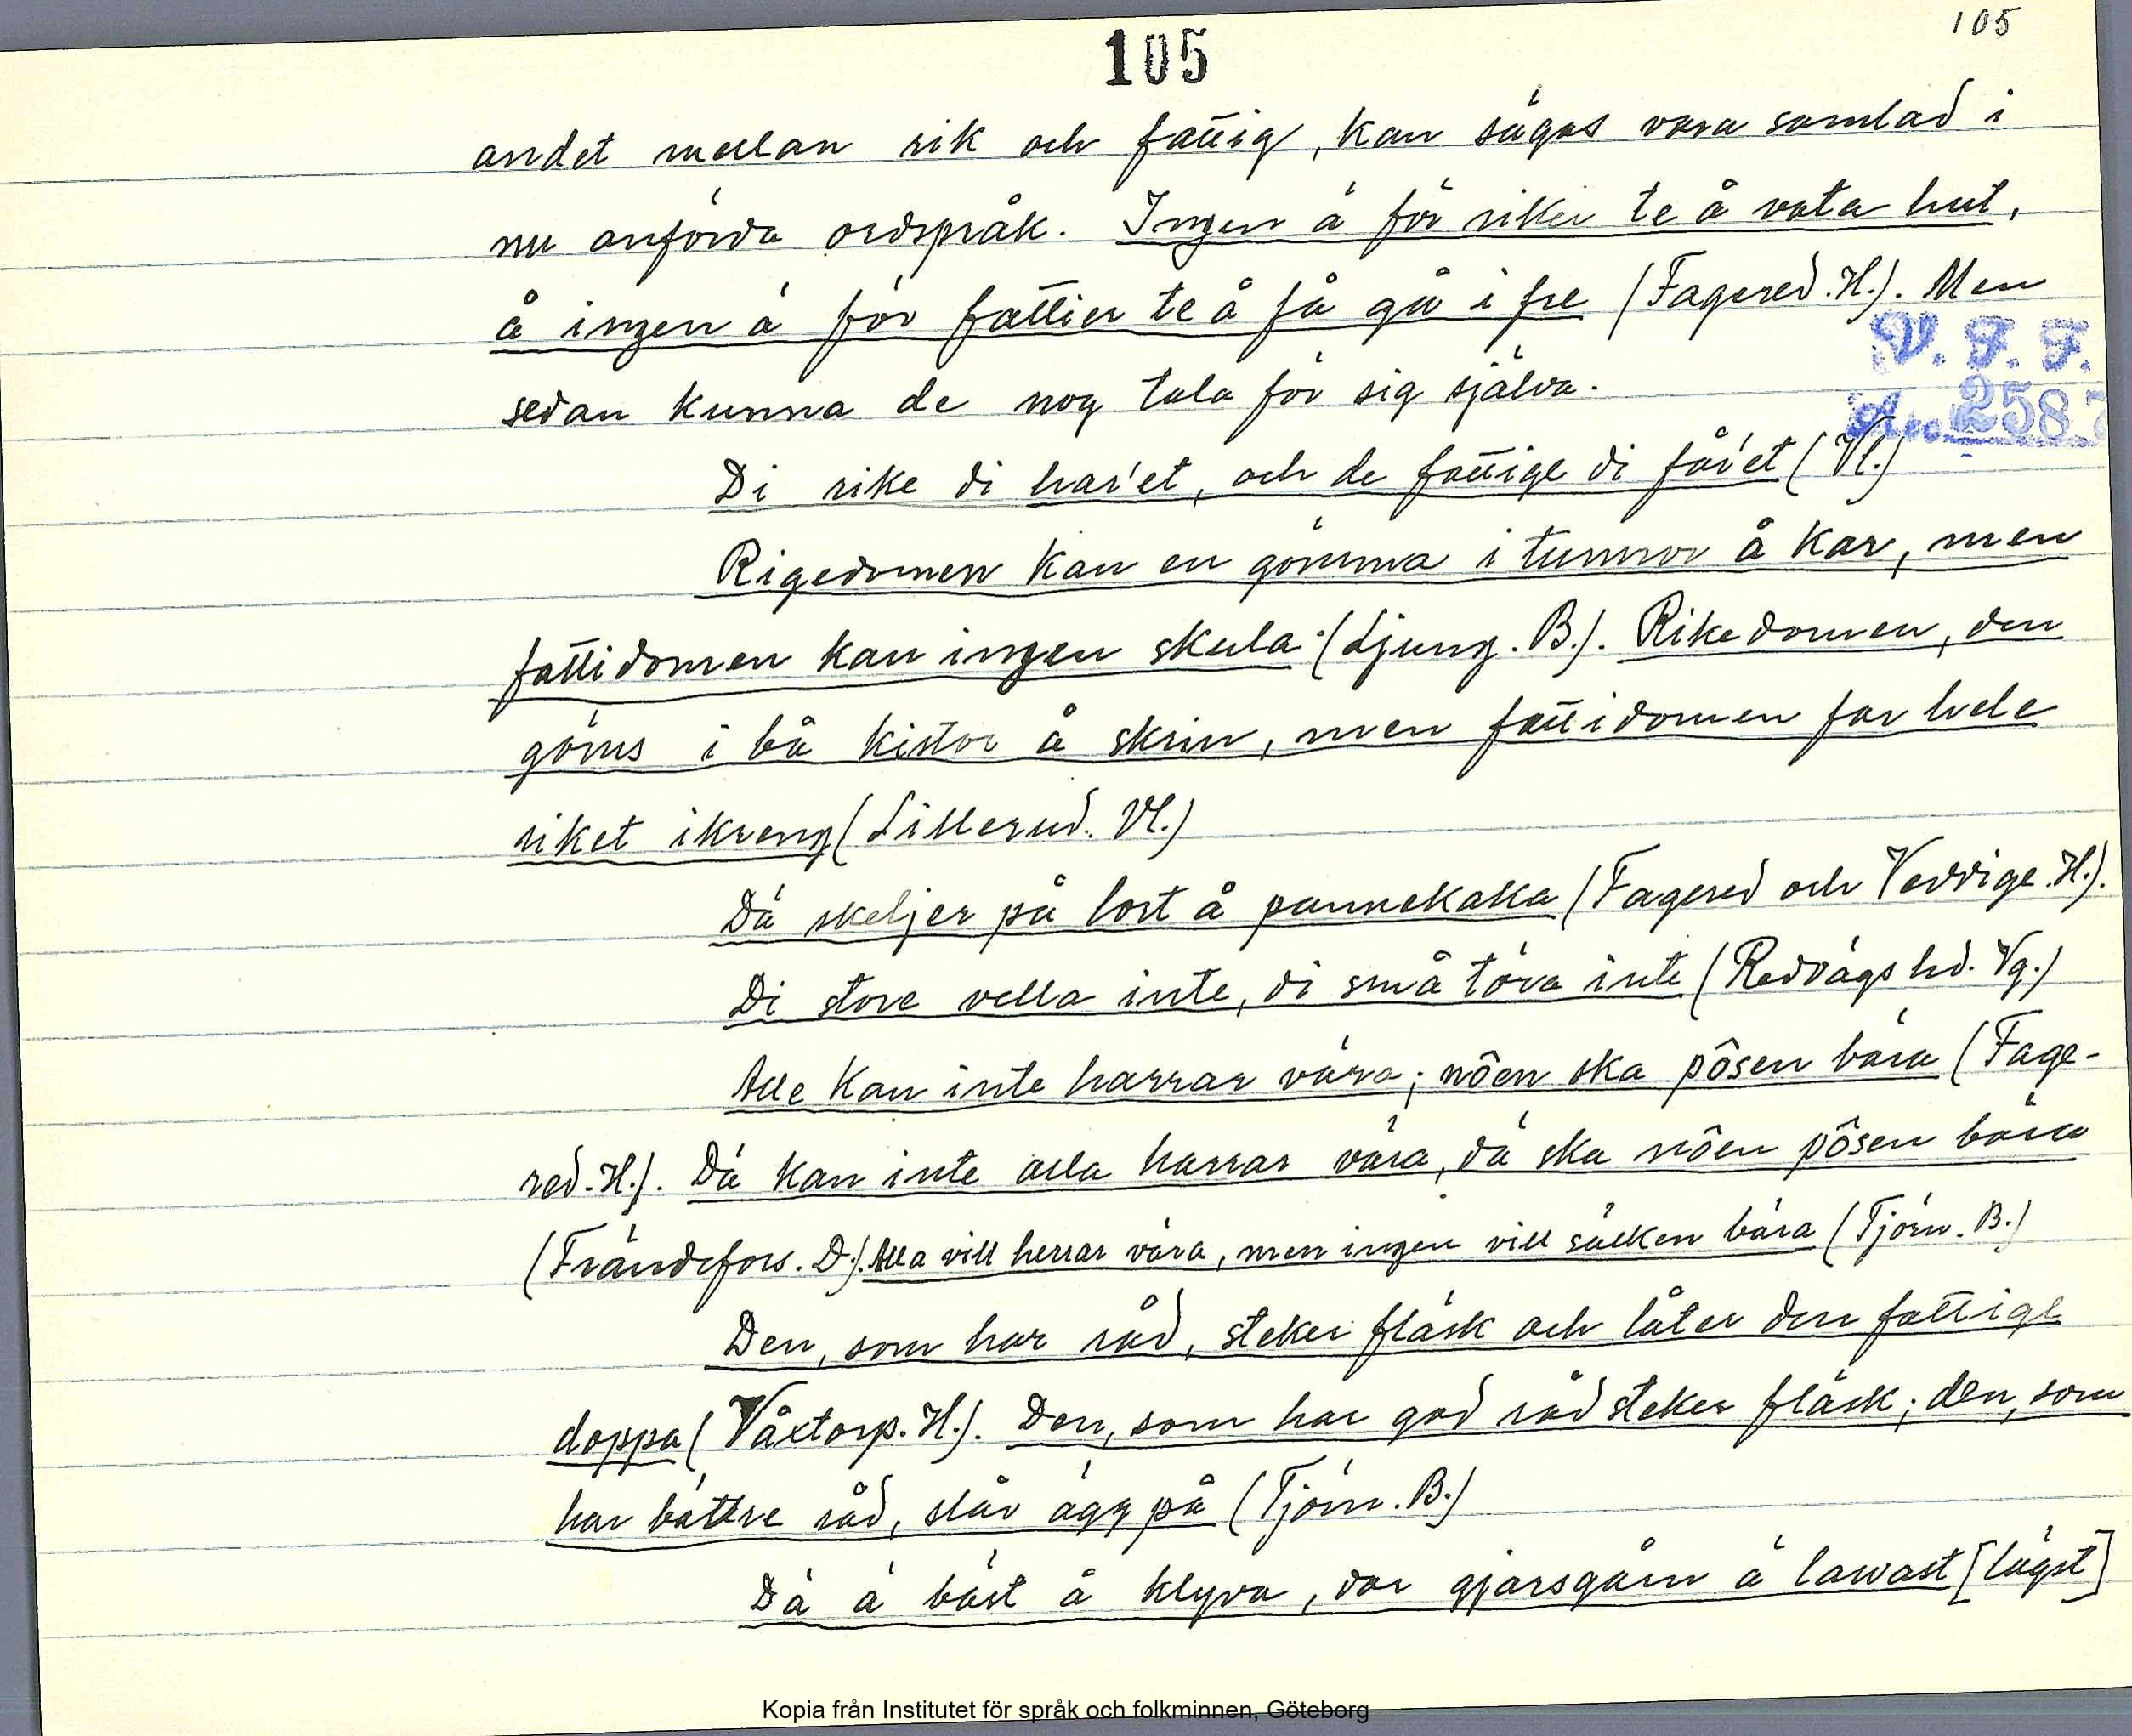 105
105
andet mellan rik och fattig, kan sägas vara samlad i
nu anförda ordspråk. Ingen ä för riker te å veta hut,
å ingen ä för fattier te å få gå i fre (Fagered. H.). Men
V. F. F.
sedan kunna de nog tala för sig själva.
Acc. 2587
Di rike di har'et, och de fattige di får'et (Vl.)
Rigedomen kan en gömma i tunnor å kar, men
fattidomen kan ingen skula (Ljung. B.). Rikedomen, den
göms i bå kistor å skrin, men fattidomen far hele
riket ikreng (Lillerud. Vl.)
Dä skeljer på lort å pannekaka (Fagered och Veddige. H.).
Di store vella inte, di små töra inte (Redvägs hd. Vg.)
Alle kan inte harrar vära; nôen ska pôsen bära (Fage-
red. H.). Dä kan inte alla harrar vära, dä ska nôen pôsen bära
(Frändefors. D.). Alla vill herrar vära, men ingen vill säcken bära (Tjörn. B.)
Den, som har råd, steker fläsk och låter den fattige
doppa (Våxtorp. H.). Den, som har god råd steker fläsk; den, som
har bättre råd, slår ägg på (Tjörn. B.)
Dä ä bäst å klyva, där gjärsgårn ä lawast [lägst]
Kopia från Institutet för språk och folkminnen, Göteborg